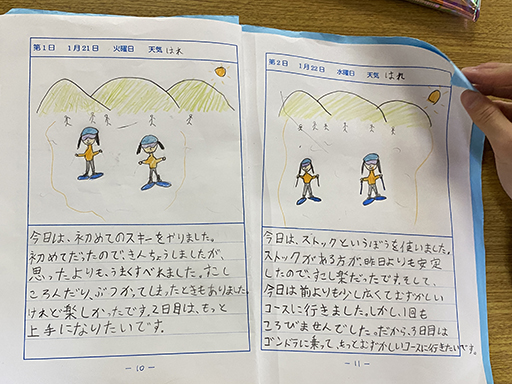 第1日 1月21日 火曜日 天気 はれ
今日は、初めてのスキーをやりました。
初めてだったので、きんちょうしましたが、
思ったよりも、うまくすべれました。すこし
ころんだり、ぶつかってしまったときもありました。
けれど楽しかったです。2日目は、もっと
上手になりたいです。
- 10 -
第2日 1月22日 水曜日 天気 はれ
今日は、ストックというぼうを使いました。
ストックがある方が、昨日よりも安定
したので、すこし楽だったです。そして、
今日は前よりも少し広くてむずかしい
コースに行きました。しかし、1回も
ころびませんでした。だから、3日目は
ゴンドラに乗って、もっとむずかしいコースに行きたいです。
- 11 -